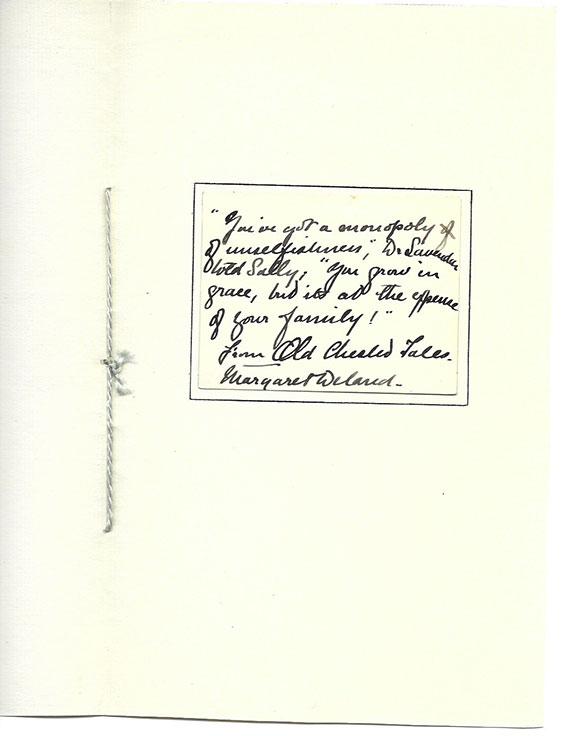 "You've got a monopoly of
of unselfishness", Dr Lavendar
told Sally; "You grow in
grace, but its at the expense
of your family!"
From Old Chester Tales.
Margaret Deland.